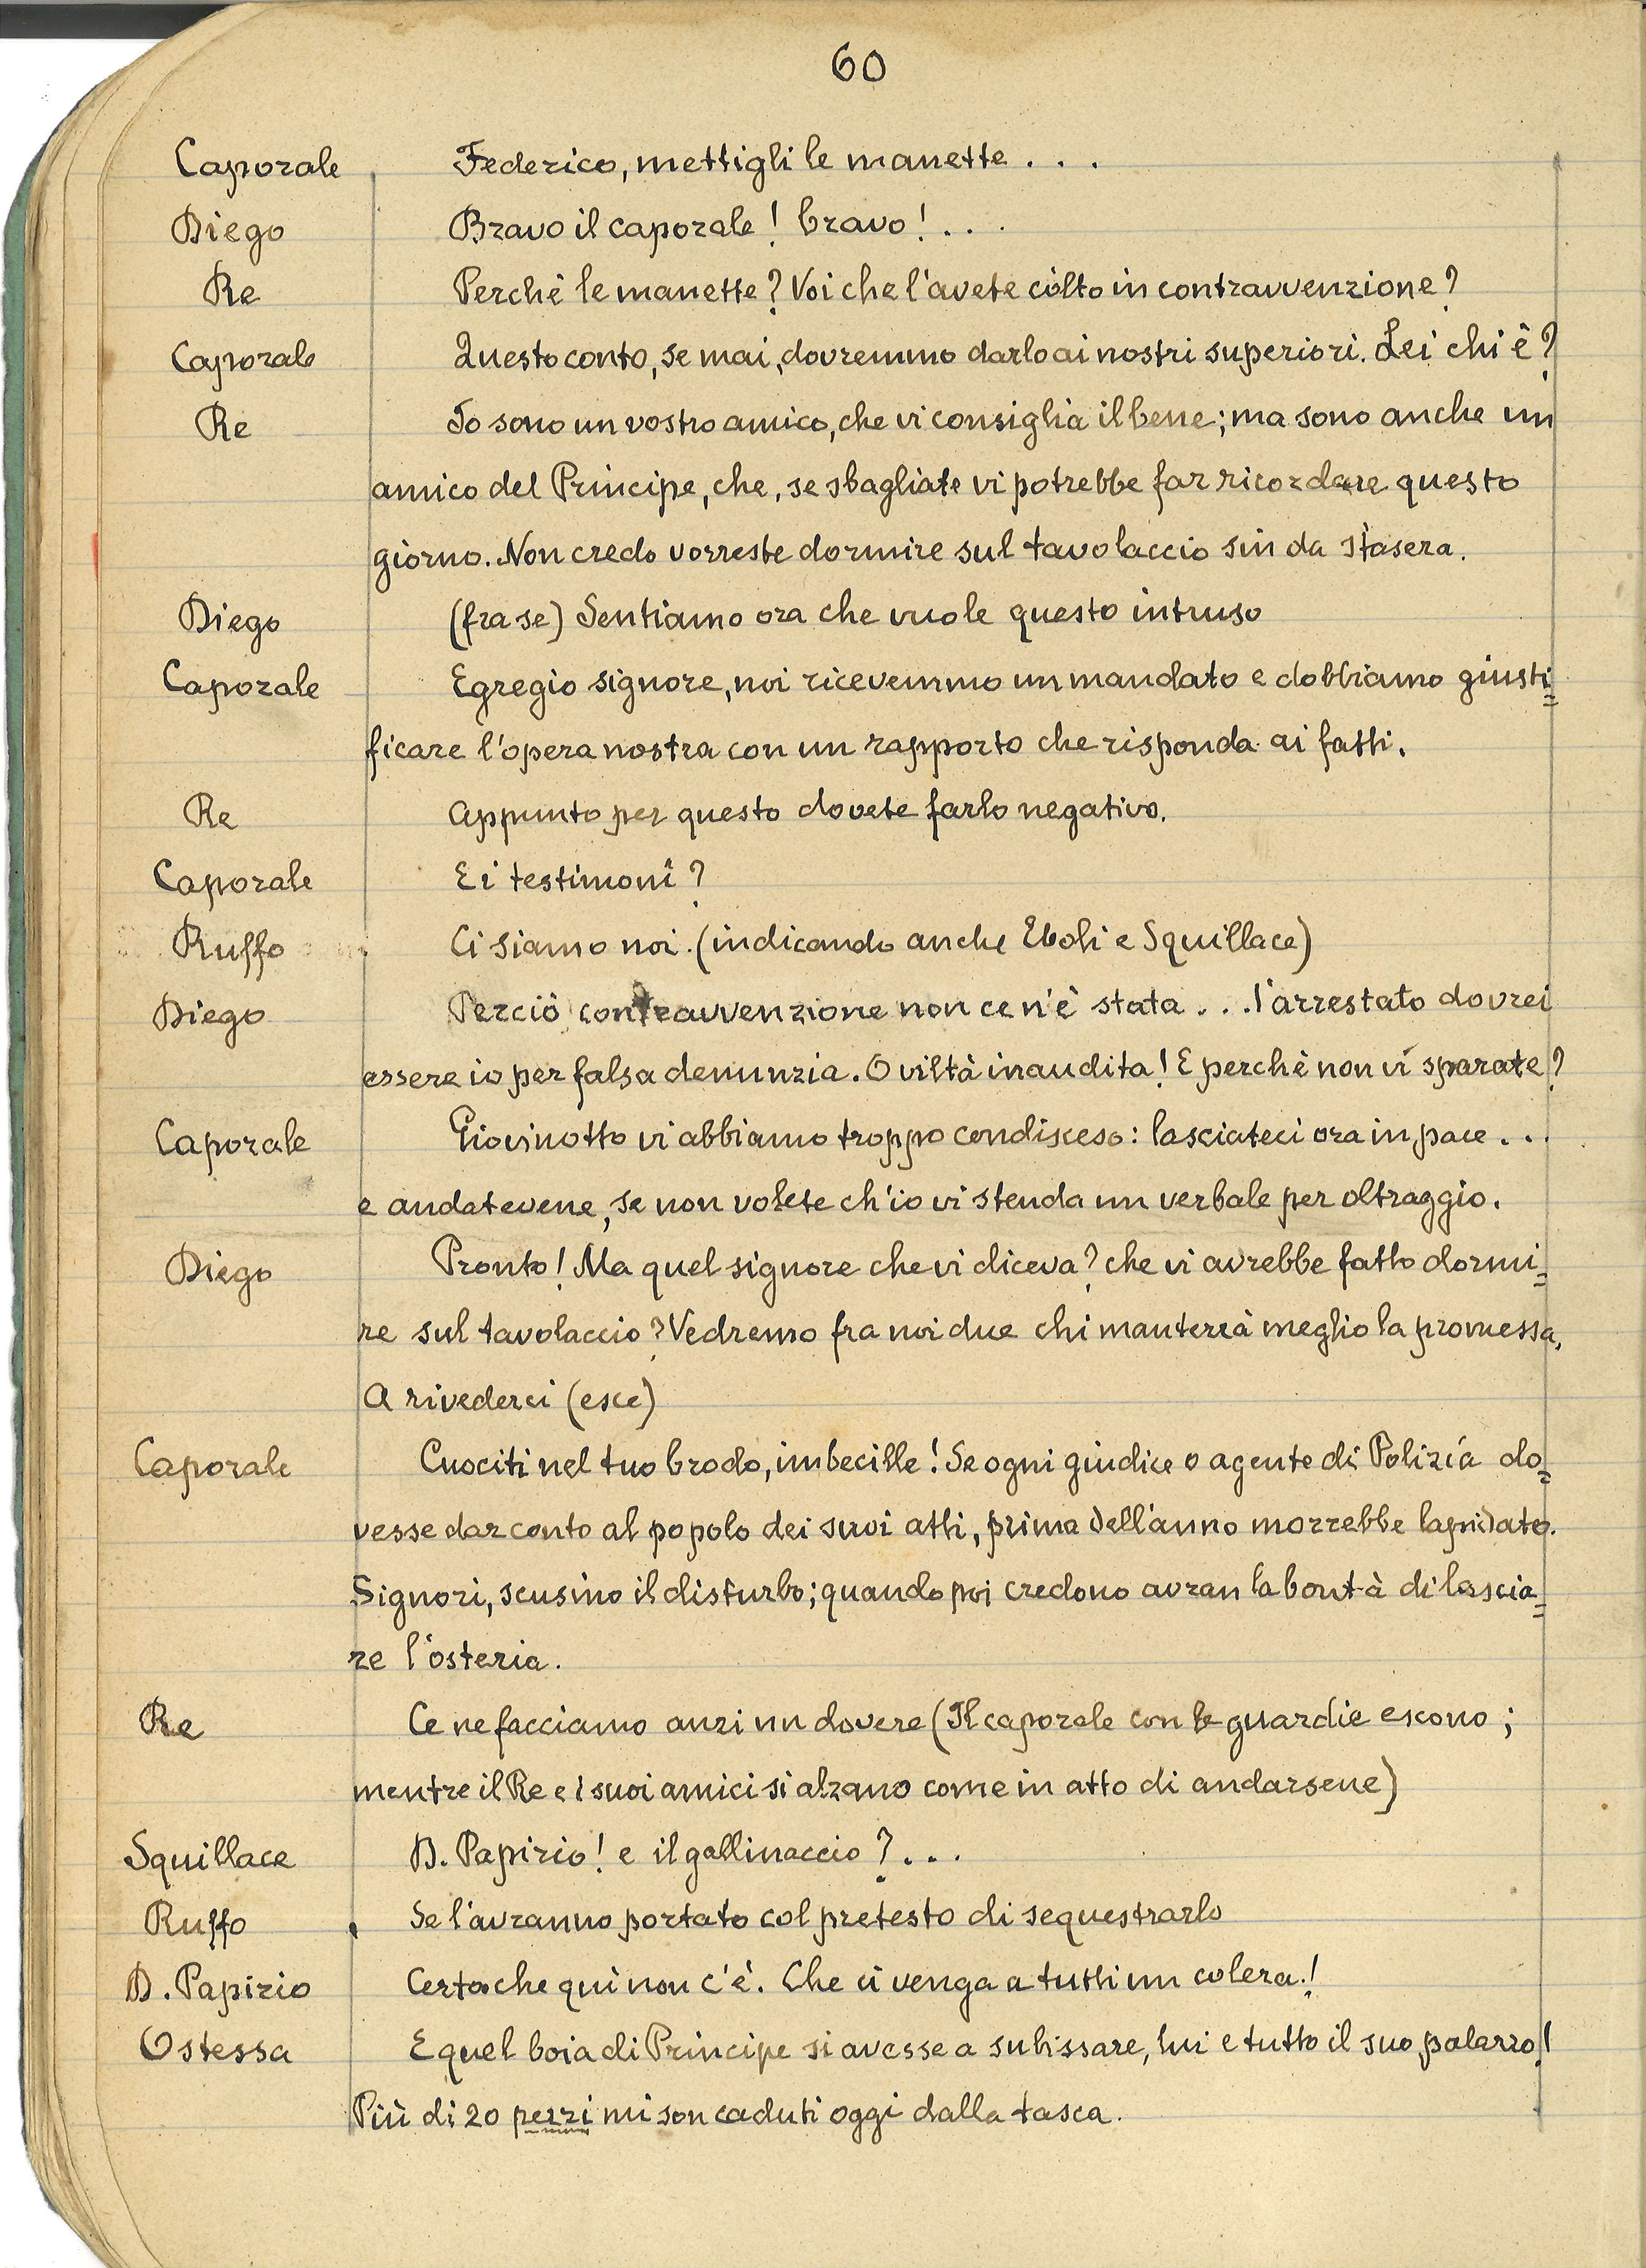 60
Caporale Federico, mettigli le manette . . .
Diego Bravo il caporale! bravo! . . .
Re Perchè le manette? Voi che l'avete còlto in contravvenzione?
Caporale Questo conto, se mai, dovremmo darlo ai nostri superiori. Lei chi è?
Re Io sono un vostro amico, che vi consiglia il bene; ma sono anche un
amico del Principe, che, se sbagliate vi potrebbe far ricordare questo
giorno. Non credo vorreste dormire sul tavolaccio sin da stasera.
Diego (fra se) Sentiamo ora che vuole questo intruso
Caporale Egregio signore, noi ricevemmo un mandato e dobbiamo giusti=
ficare l'opera nostra con un rapporto che risponda ai fatti.
Re Appunto per questo dovete farlo negativo.
Caporale E i testimonî?
Ruffo Ci siamo noi. (indicando anche Eboli e Squillace)
Diego Perciò contravvenzione non ce n'è stata . . . l'arrestato dovrei
essere io per falsa denunzia. O viltà inaudita! E perchè non vi sparate?
Caporale Giovinotto vi abbiamo troppo condisceso: lasciateci ora in pace . . .
e andatevene, se non volete ch'io vi stenda un verbale per oltraggio.
Diego Pronto! Ma quel signore che vi diceva? che vi avrebbe fatto dormi=
re sul tavolaccio? Vedremo fra noi due chi manterrà meglio la promessa.
A rivederci (esce)
Caporale Cuociti nel tuo brodo, imbecille! Se ogni giudice o agente di Polizía do=
vesse dar conto al popolo dei suoi atti, prima dell'anno morrebbe lapidato.
Signori, scusino il disturbo; quando poi credono avran la bontà di lascia=
re l'osteria.
Re Ce ne facciamo anzi un dovere (Il caporale con le guardie escono;
mentre il Re e i suoi amici si alzano come in atto di andarsene)
Squillace D. Papirio! e il gallinaccio? . . .
Ruffo Se l'avranno portato col pretesto di sequestrarlo
D. Papirio Certo che quì non c'è. Che ci venga a tutti un colera!
Ostessa E quel boia di Principe si avesse a subissare, lui e tutto il suo palazzo!
Più di 20 pezzi mi son caduti oggi dalla tasca.